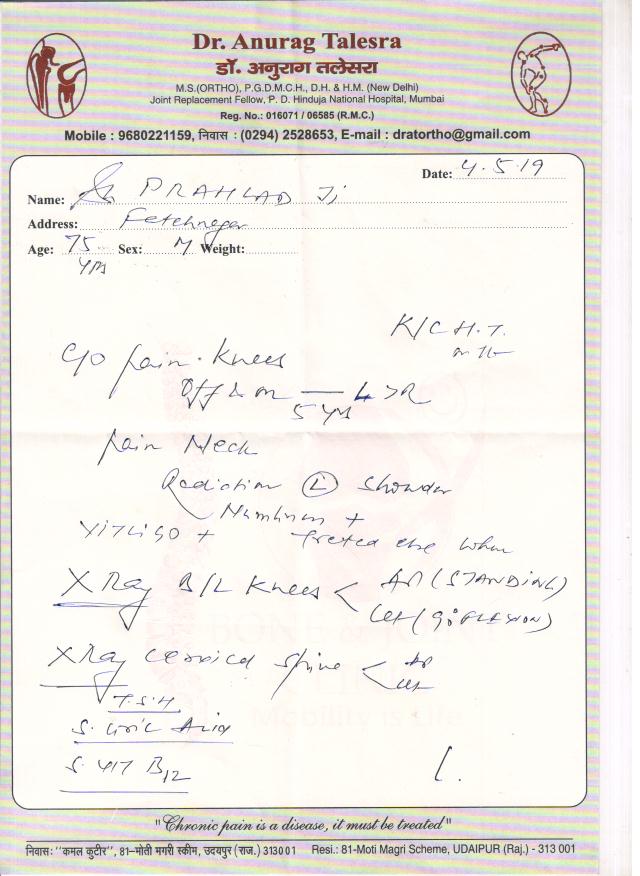 Dr. Anurag Talesra
डॉ. अनुराग तलेसरा
M.S.(ORTHO), P.G.D.M.C.H., D.H. & H.M. (New Delhi)
Joint Replacement Fellow, P. D. Hinduja National Hospital, Mumbai
Reg. No.: 016071 / 06585 (R.M.C.)
Mobile : 9680221159, निवास : (0294) 2528653, E-mail : dratortho@gmail.com
Date: 4.5.19
Name: PRAHLAD Ji
Address: Fatehnagar
Age: 75 yrs Sex: M Weight:
K/C H.T.
on
C/O pain . Knees
Off & on — L > R
5 yrs
pain Neck
Radiation Ⓛ Shoulder
Numbness +
VITILIGO + treated else where
X Ray B/L Knees < AP (STANDING)
LAT (90° FLEXION)
X Ray cervical spine < AP
LAT
T.S.H
S. Uric Acid
S. VIT B12
BONE & JOINT
Mobility is Life
"Chronic pain is a disease, it must be treated"
निवास: "कमल कुटीर", 81–मोती मगरी स्कीम, उदयपुर (राज.) 313001 Resi.: 81-Moti Magri Scheme, UDAIPUR (Raj.) - 313 001